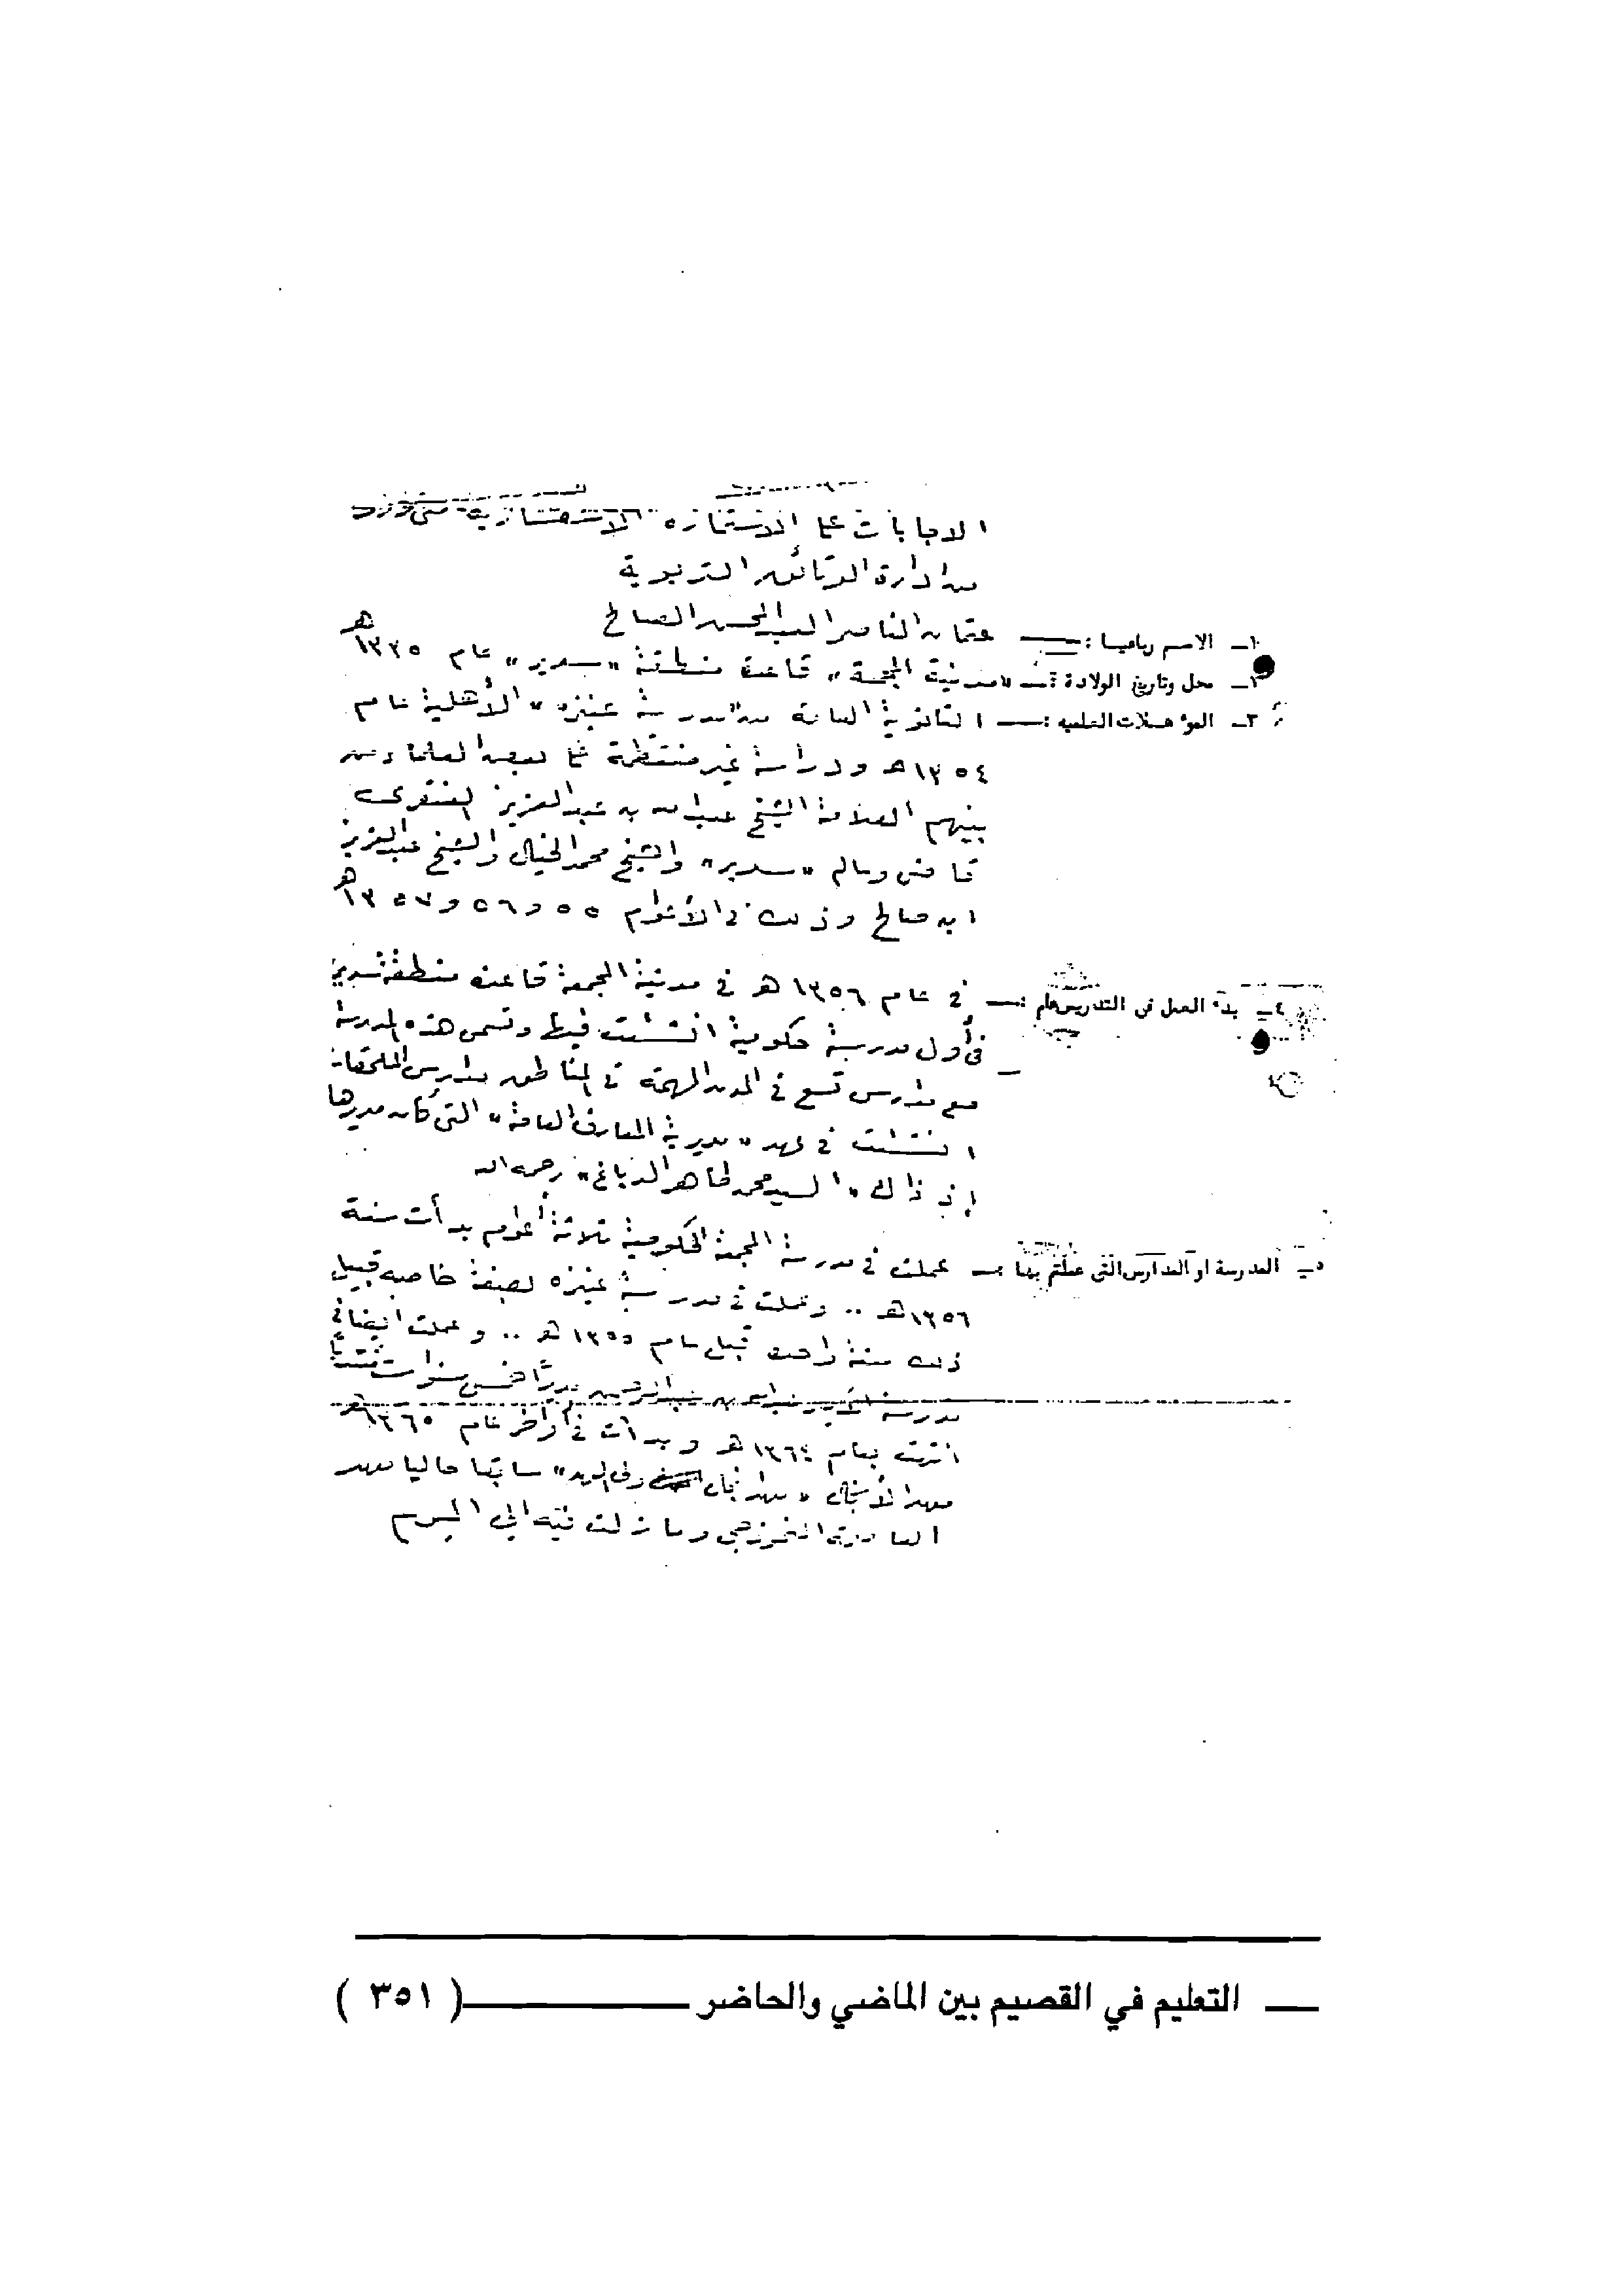 الاجابات على الاستمارة الاستفسارية
من ادارة الوثائق التربوية
١ــ الاسم رباعيا : ــ عثمان الناصر العبدالمحسن الصالح
٢ــ محل وتاريخ الولادة : ــ «مدينة المجمعة» قاعدة منطقة «سدير» عام ١٣٣٥ هـ
٣ــ المؤهلات العلمية : ــ الثانوية العامة من «مدرسة عنيزه» الأهلية عام
١٣٥٤هـ ودراسة غير منتظمة على بعض العلماء ومن
بينهم العلامة الشيخ عبدالله بن عبدالعزيز العنقري
قاضي وعالم «سدير» والشيخ محمد الخيال والشيخ عبدالعزيز
ابن صالح وذلك في الأعوام ٥٥ و ٥٦ و ١٣٥٧ هـ
٤ــ بدء العمل في التدريس عام : ــ في عام ١٣٥٦ هـ في مدينة المجمعة قاعدة منطقة سدير
في أول مدرسة حكومية انشئت فيها وتسمى هذه المدرسة
مع مدارس تسع في المدن المهمة في المناطق مدارس الملحقات
انشئت في عهد «مديرية المعارف العامة» التي كان مديرها
إذ ذاك «السيد محمد طاهر الدباغ» رحمه الله
٥ــ المدرسة او المدارس التي علم بها : ــ عملت في مدرسة المجمعة الحكومية ثلاثة أعوام بدأت سنة
١٣٥٦هـ .. وعملت في مدرسة عنيزه بصفة خاصه قبيل
ذلك سنة واحدة قبل عام ١٣٥٥ هـ .. وعملت ايضا في
مدرسة الأمير عبدالله بن عبدالرحمن مديرًا خمس سنوات تقريبًا
انتهت بعام ١٣٦٤ هـ وبدأت في أواخر عام ١٣٦٥هـ
معهد الأنجال «معهد أنجال ولي العهد» سابقا حاليا معهد
العاصمة النموذجي وما زلت فيه الى اليوم
ــ التعليم في القصيم بين الماضي والحاضر ــ ( ٣٥١ )